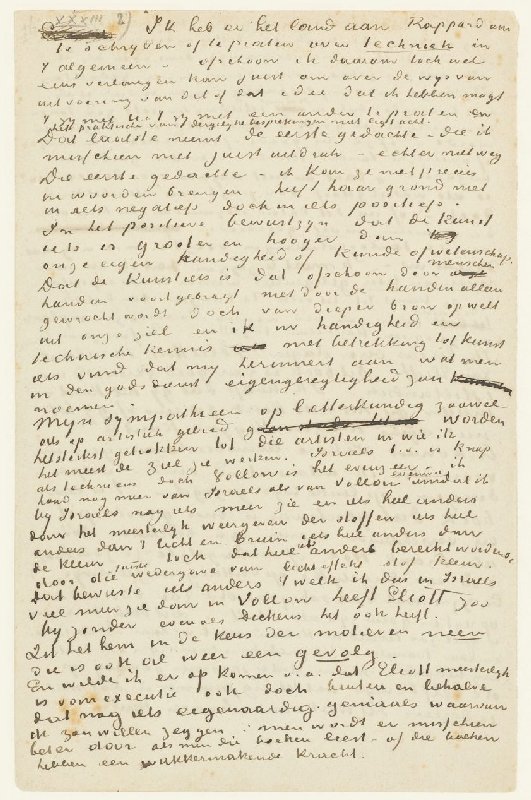 XXXIII 2)
Ik heb er het land aan Rappard om
te schrijven of te praten over techniek in
't algemeen - ofschoon ik daarom toch wel
eens verlangen kan juist om over de wijs van
uitvoering van dit of dat idee dat ik hebben mogt
't zij met U 't zij met een ander te praten en
het praktische van dergelijke besprekingen niet ligt acht.
Dat laatste neemt de eerste gedachte - die ik
misschien niet juist uitdruk - echter niet weg
Die eerste gedachte - ik kom ze niet precies
in woorden brengen heeft haar grond niet
in iets negatiefs doch in iets positiefs.
In het positieve bewustzijn dat de kunst
iets is grooter en hooger dan
onze eigen handigheid of kunde of wetenschap.
Dat de kunst iets is dat ofschoon door menschen
handen voortgebragt niet door de handen alleen
gewrocht wordt doch van dieper bron opwelt
uit onze ziel en ik in handigheid en
technische kennis met betrekking tot kunst
iets vind dat mij herinnert aan wat men
in den godsdienst eigengeregtigheid zou
noemen.
Mijn sympathieen op letterkundig zoowel
als op artistiek gebied worden
het sterkst getrokken tot die artisten in wie ik
het meest de ziel zie werken. Israels b.v. is knap
als technicus doch Vollon is het evenzeer ik
houd nog meer van Israels als van Vollon omdat ik
bij Israels nog iets meer zie en iets heel anders
dan het meesterlijk weergeven der stoffen iets heel
anders dan 't licht en bruin iets heel anders dan
de kleur - toch dat heel anders bereikt wordende
door die juiste wedergave van lichteffekt stof kleur.
Dat bewuste iets anders 't welk ik dus in Israels
veel meer zie dan in Vollon heeft Eliott zoo
bij zonder evenals Dickens het ook heeft.
Zit het hem in de keus der motieven neen
die is ook al weer een gevolg.
En wilde ik er op komen o.a. dat Eliott meesterlijk
is van executie ook doch buiten en behalve
dat nog iets eigenaardig geniaals waarvan
ik zou willen zeggen - men wordt er misschien
beter door als men die boeken leest - of die boeken
hebben een wakkermakende kracht.